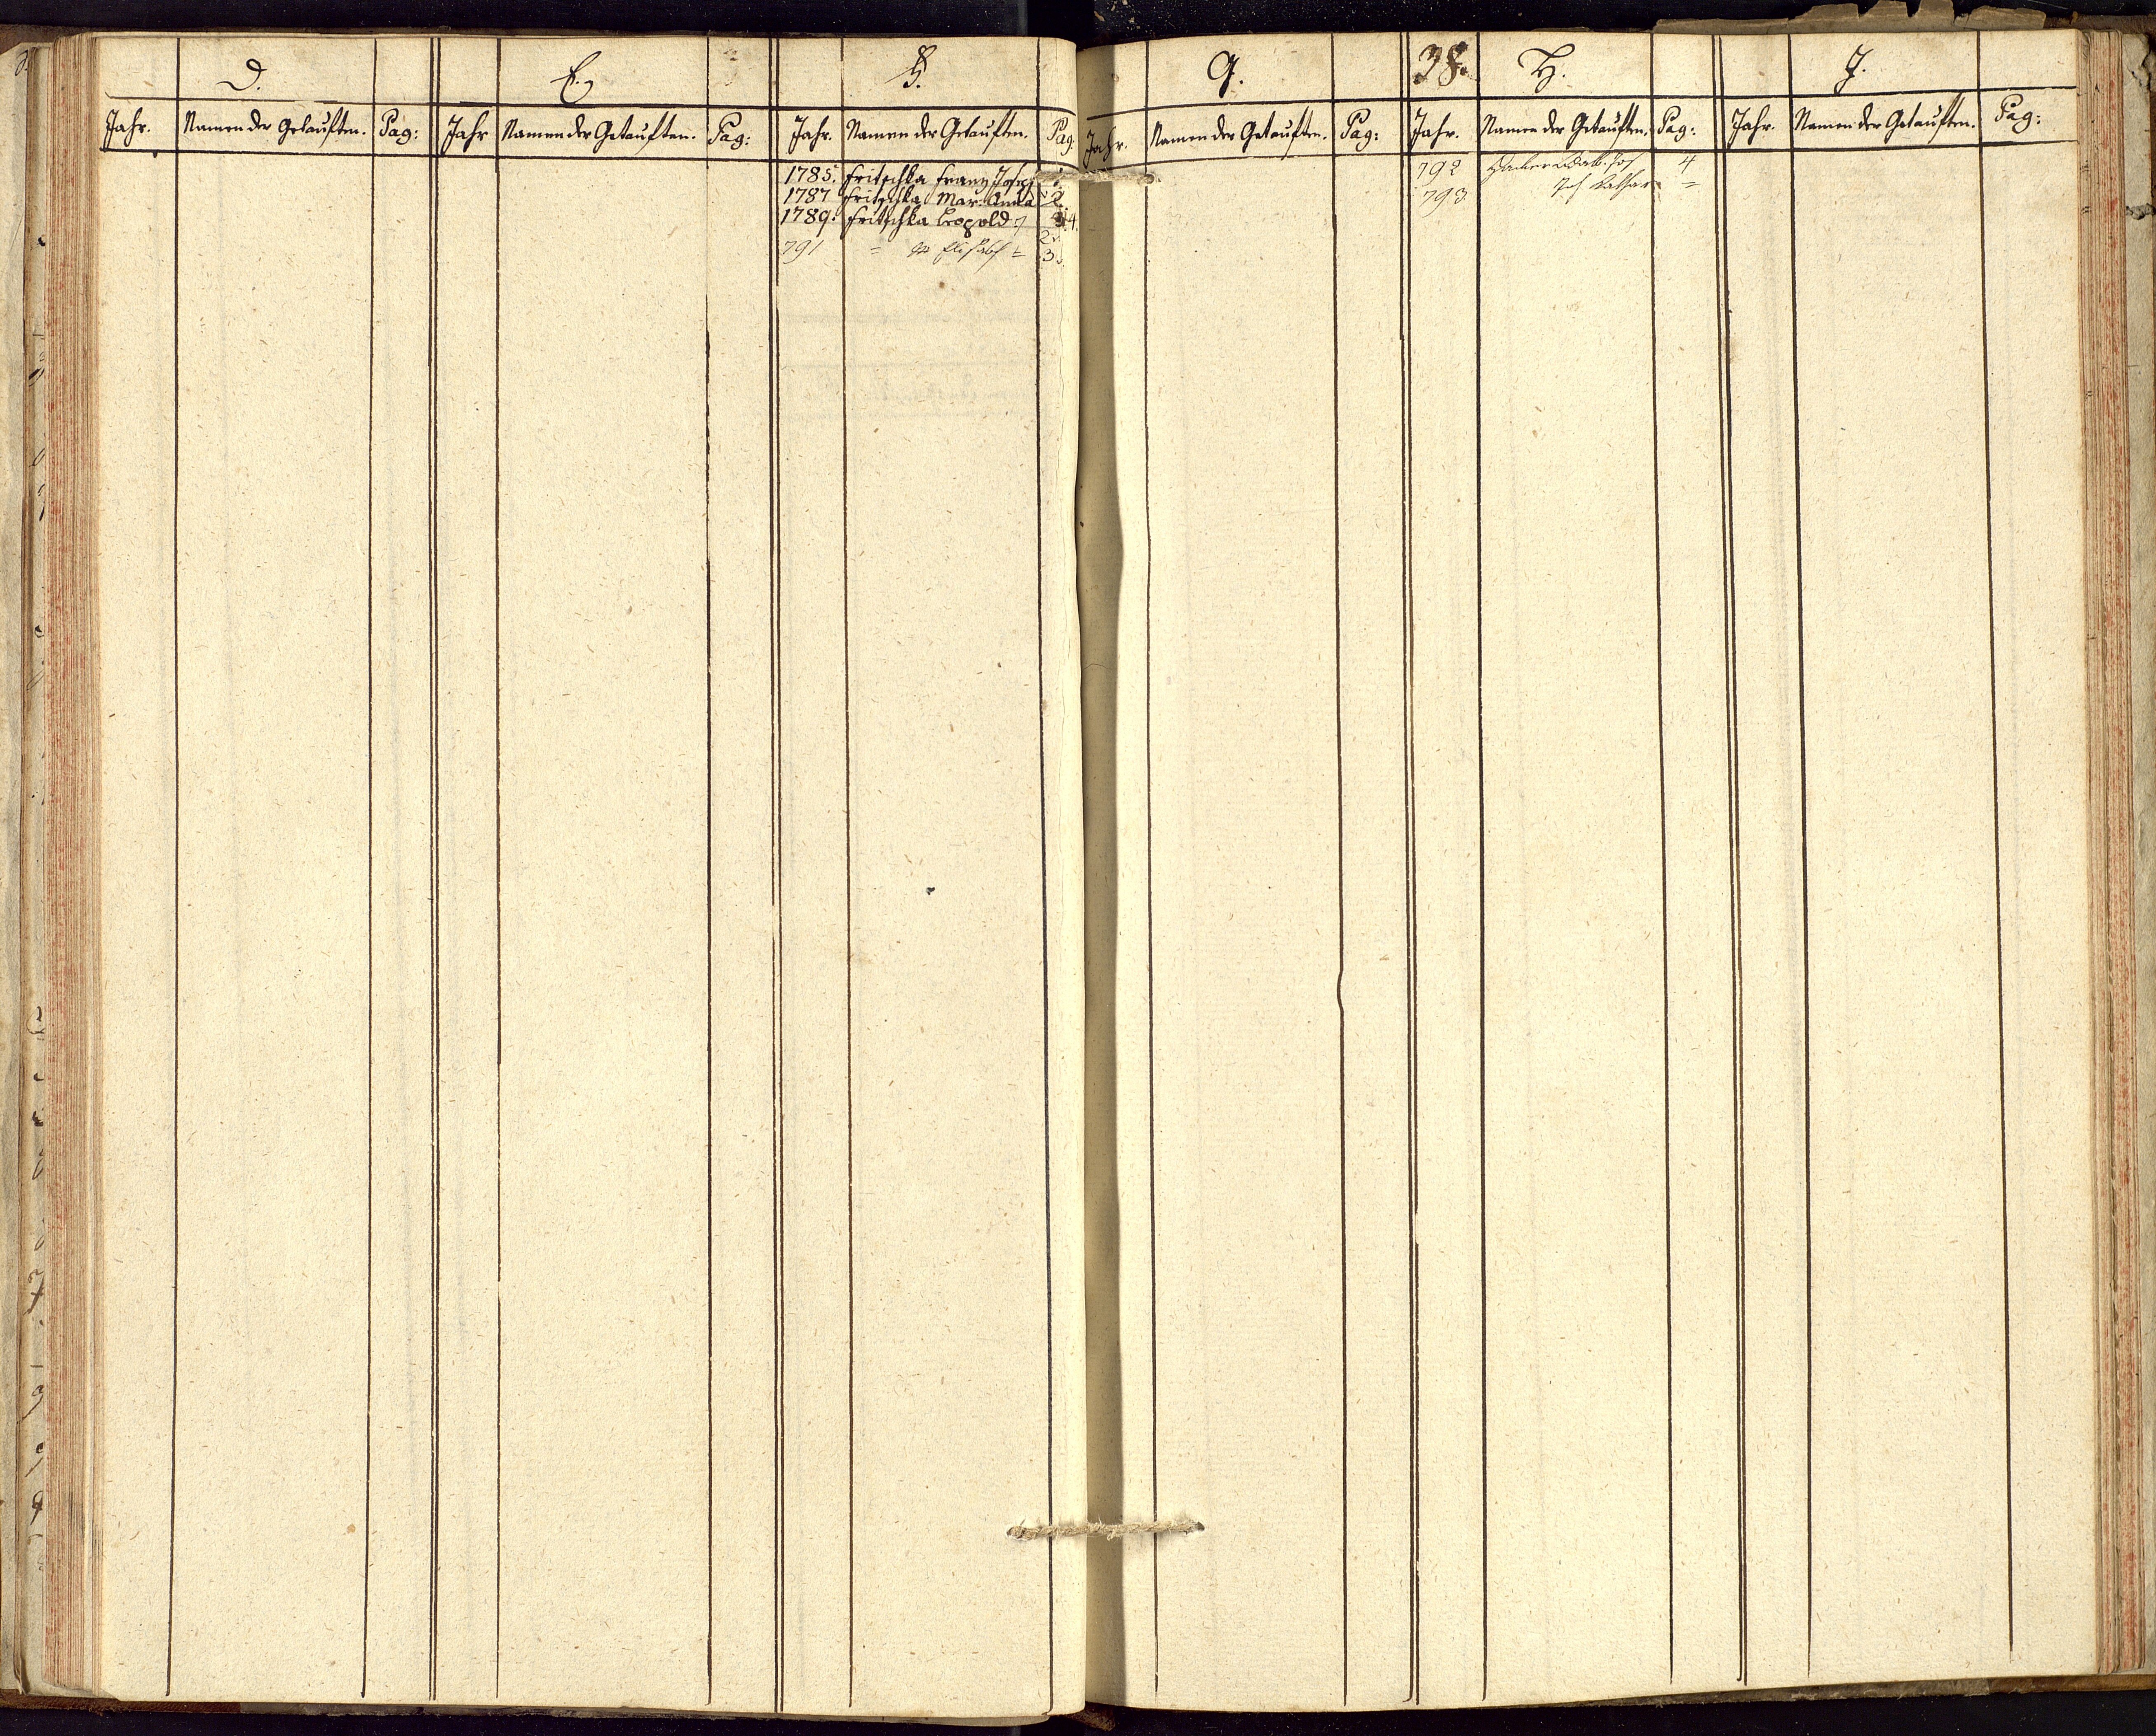 D. E. F. G. 38. H. J.
Jahr. Namen der Getauften. Pag: Jahr Namen der Getauften. Pag: Jahr. Namen der Getauften. Pag. Jahr. Namen der Getauften. Pag: Jahr. Namen der Getauften. Pag: Jahr. Namen der Getauften. Pag:
1785. Fritschka Franz Joseph 1.
1787 Fritschka Mar. Anna 2.
1789. Fritschka Leopold
791 = Elisabeth = 3.
792 4
793 Kathar =